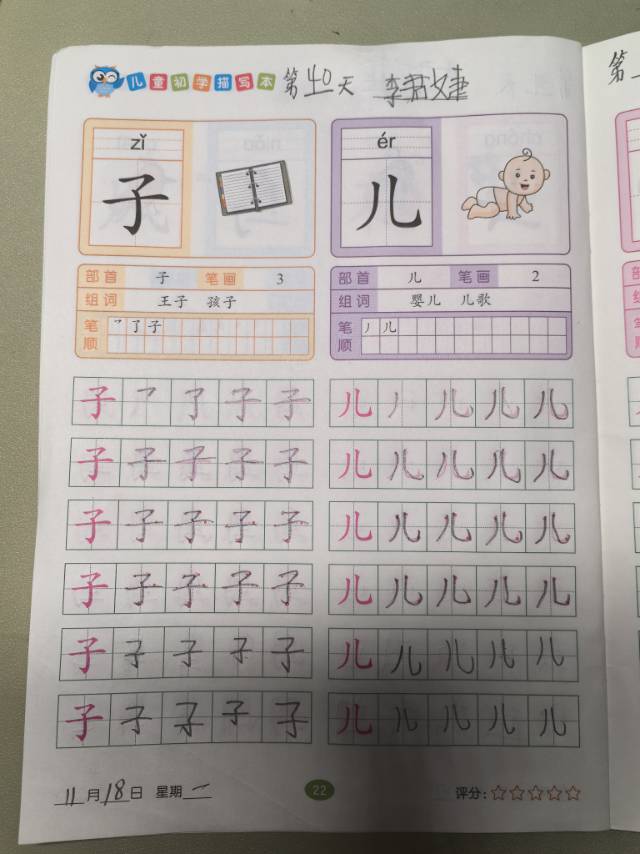 儿童初学描写本 第40天 李君婕
zǐ
子
ér
儿
部首 子 笔画 3
组词 王子 孩子
笔顺 乛 了 子
部首 儿 笔画 2
组词 婴儿 儿歌
笔顺 丿 儿
子 乛 了 子 子
儿 丿 儿 儿 儿
子 子 子 子 子
儿 儿 儿 儿 儿
子 子 子 子 子
儿 儿 儿 儿 儿
子 子 子 子 子
儿 儿 儿 儿 儿
子 子 子 子 子
儿 儿 儿 儿 儿
子 子 子 子 子
儿 儿 儿 儿 儿
11月18日 星期一
22
评分:☆☆☆☆☆
第